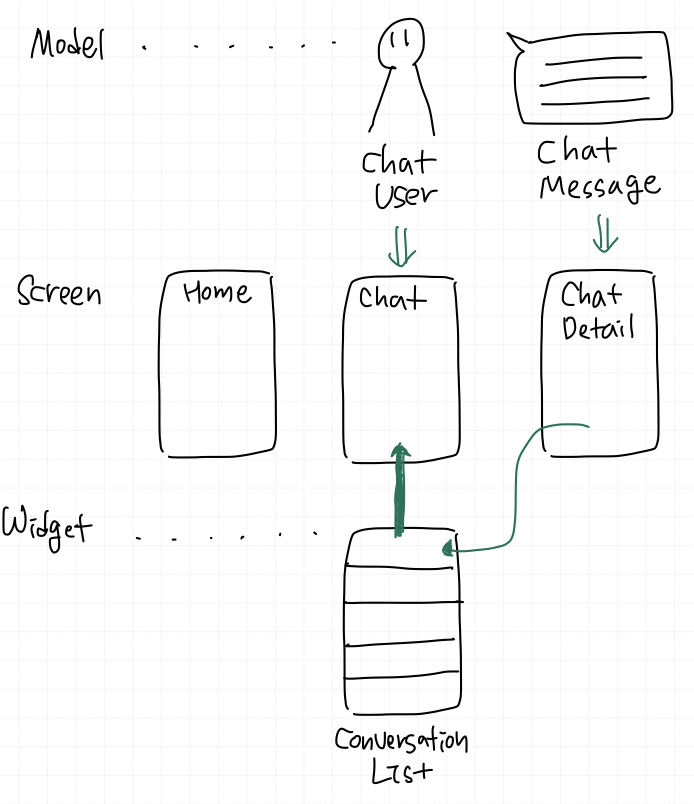 Model
Chat
User
Chat
Message
Screen
Home
Chat
Chat
Detail
Widget
Conversation
List